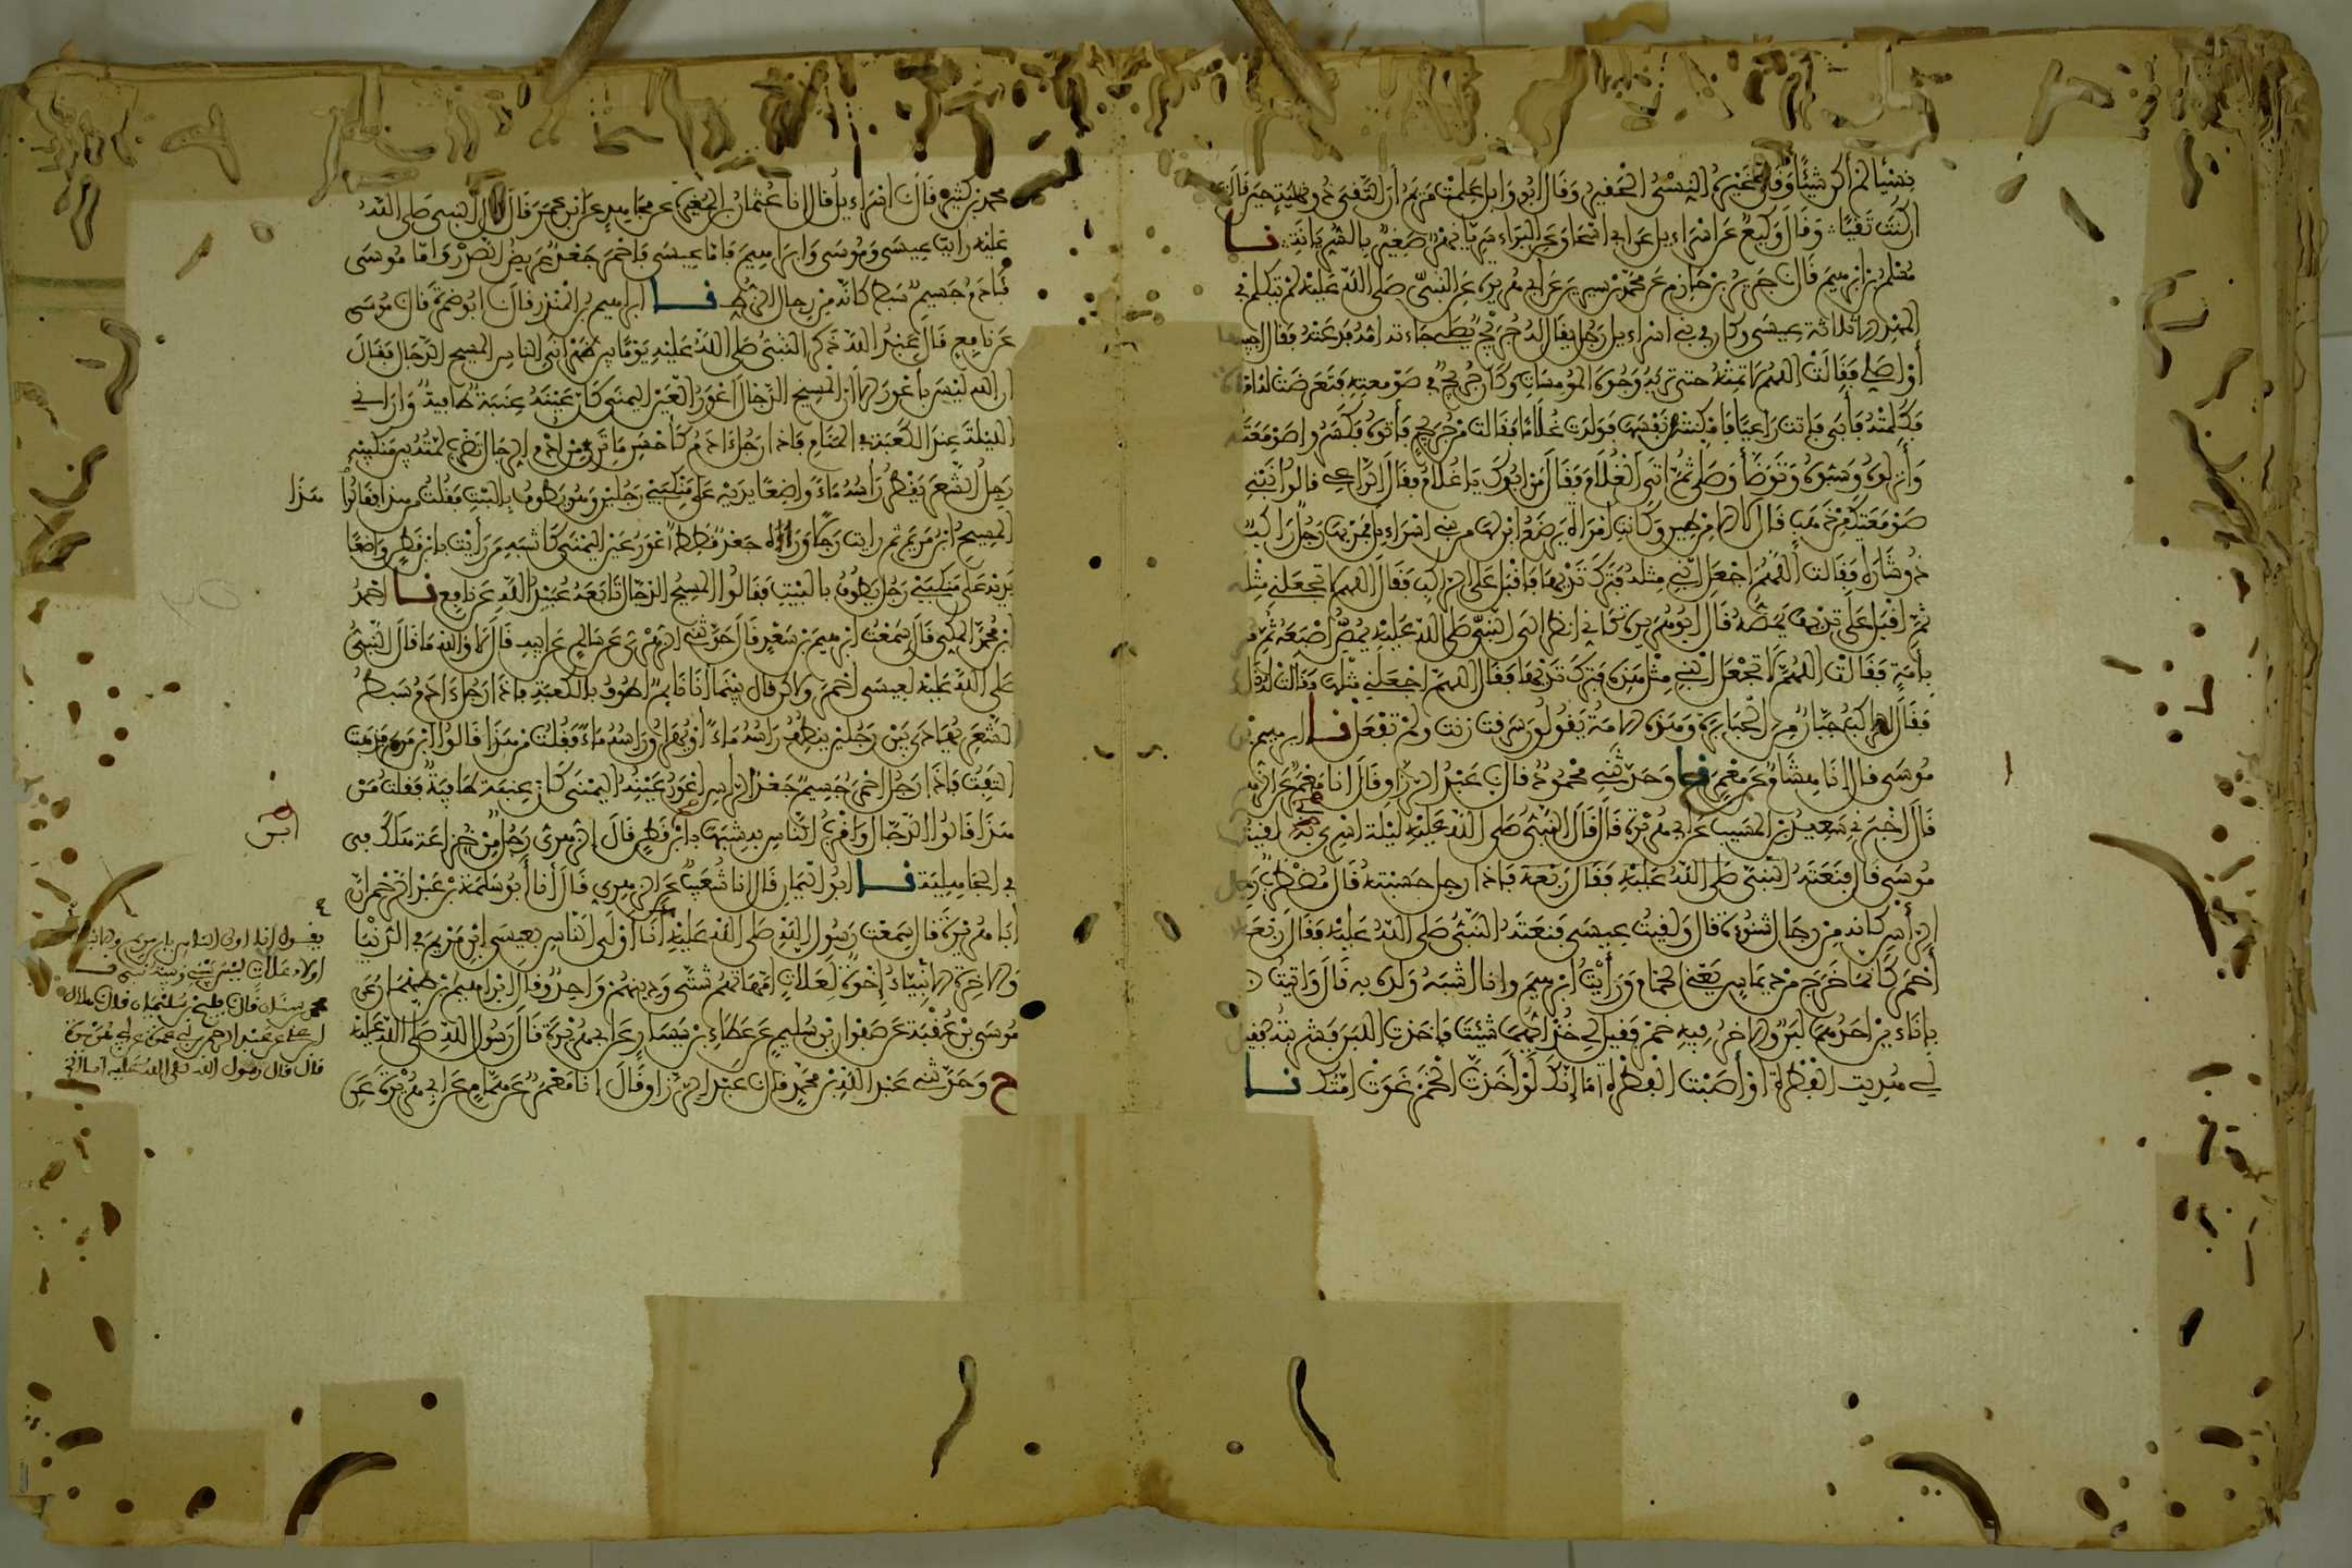 نسيا لم أكن شيئا وقال غيره النسي الحقير وقال أبو وايل علمت مريم أن التقي ذو نهية حين قالت
ان كنت تقيا وقال وكيع عن اسراءيل عن ابي اسحاق عن البراء سريا نهر صغير بالسريانية نا
مسلم بن ابرهيم قال جرير بن حازم عن محمد بن سيرين عن أبي هريرة عن النبي صلى الله عليه لم يتكلم في
المهد الا ثلاثة عيسى وكان في بني اسراءيل رجل يقال له جريج يصلي جاءته امه فدعته فقال اجيبها
أو اصلي فقالت اللهم لا تمته حتى تريه وجوه المومسات وكان جريج في صومعته فتعرضت له امرأة
فكلمته فأبى فاتت راعيا فامكنته من نفسها فولدت غلاما فقالت من جريج فأتوه فكسروا صومعته
وأنزلوه وسبوه وتوضأ وصلى ثم اتى الغلام فقال من ابوك يا غلام فقال الراعي قالوا نبني
صومعتك من ذهب قال لا الا من طين وكانت امرأة ترضع ابنا لها من بني اسراءيل فمر بها رجل راكب
ذو شارة فقالت اللهم اجعل ابني مثله فترك ثديها فاقبل على الراكب فقال اللهم لا تجعلني مثله
ثم اقبل على ثديها يمصه قال أبو هريرة كأني انظر الى النبي صلى الله عليه يمص إصبعه ثم مر
بأمة فقالت اللهم لا تجعل ابني مثل هذه فترك ثديها فقال اللهم اجعلني مثلها فقالت لم ذاك
فقال الراكب جبار من الجبابرة وهذه الامة يقولون سرقت زنت ولم تفعل نا ابرهيم بن
موسى قال انا هشام عن معمر نا وحدثني محمود قال عبد الرزاق قال انا معمر عن الزهري
قال أخبرني سعيد بن المسيب عن ابي هريرة قال قال النبي صلى الله عليه ليلة اسري به لقيت
موسى قال فنعته النبي صلى الله عليه فقال ربعة فاذا رجل حسبته قال مضطرب رجل
الرأس كانه من رجال شنوءة قال ولقيت عيسى فنعته النبي صلى الله عليه فقال ربعة
أحمر كأنما خرج من ديماس يعني الحمام ورأيت ابرهيم وانا اشبه ولده به قال واتيت
باناءين احدهما لبن والاخر فيه خمر فقيل لي خذ أيهما شيت فاخذت اللبن فشربته فقيل
لي هديت الفطرة أو أصبت الفطرة أما إنك لو أخذت الخمر غوت امتك نا
محمد بن كثير قال اسراءيل قال انا عثمان بن المغيرة عن مجاهد عن ابن عمر قال قال النبي صلى الله
عليه رايت عيسى وموسى وابرهيم فاما عيسى فاحمر جعد عريض الصدر واما موسى
فآدم جسيم سبط كانه من رجال الزط نا ابراهيم بن المنذر قال ابو ضمرة قال موسى
عن نافع قال عبد الله ذكر النبي صلى الله عليه يوما بين ظهراني الناس المسيح الدجال فقال
ان الله ليس بأعور الا ان المسيح الدجال أعور العين اليمنى كأن عينه عنبة طافية وأراني
الليلة عند الكعبة في المنام فاذا رجل آدم كأحسن ما ترى من ادم الرجال تضرب لمته بين منكبيه
رجل الشعر يقطر رأسه ماء واضعا يديه على منكبي رجلين وهو يطوف بالبيت فقلت من هذا فقالوا هذا
المسيح ابن مريم ثم رايت رجلا وراءه جعدا قططا أعور عين اليمنى كاشبه من رأيت بابن قطن واضعا
يديه على منكبي رجل يطوف بالبيت فقالوا المسيح الدجال تابعه عبيد الله عن نافع نا احمد
ابن محمد المكي قال سمعت ابرهيم بن سعد قال حدثني الزهري عن سالم عن ابيه قال لا والله ما قال النبي
صلى الله عليه لعيسى أحمر ولاكن قال بينما انا نايم اطوف بالكعبة فاذا رجل آدم سبط
الشعر يهادى بين رجلين ينطف رأسه ماء او يهراق رأسه ماء فقلت من هذا قالوا ابن مريم فذهبت
التفت فاذا رجل احمر جسيم جعد الراس اعور عينه اليمنى كان عينه عنبة طافية فقلت من
هذا قالوا الدجال واقرب الناس به شبها ابن قطن قال الزهري رجل من خزاعة هلك
في الجاهلية نا ابو اليمان قال انا شعيب عن الزهري قال أنا أبو سلمة بن عبد الرحمن ان
أبا هريرة قال سمعت رسول الله صلى الله عليه أنا أولى الناس بعيسى ابن مريم في الدنيا
والاخرة الانبياء إخوة لعلات امهاتهم شتى ودينهم واحد وقال ابراهيم بن طهمان عن
موسى بن عقبة عن صفوان بن سليم عن عطاء بن يسار عن ابي هريرة قال رسول الله صلى الله عليه
ح وحدثني عبد الله بن محمد قال عبد الرزاق قال انا معمر عن همام عن ابي هريرة عن
ابن
يقول انا اولى الناس بابن مريم والانبياء
اولاد علات ليس بيني وبينه نبي نا
محمد بن سنان قال فليح بن سليمان قال هلال
ابن علي عن عبد الرحمن بن أبي عمرة عن أبي هريرة
قال قال رسول الله صلى الله عليه انا اولى